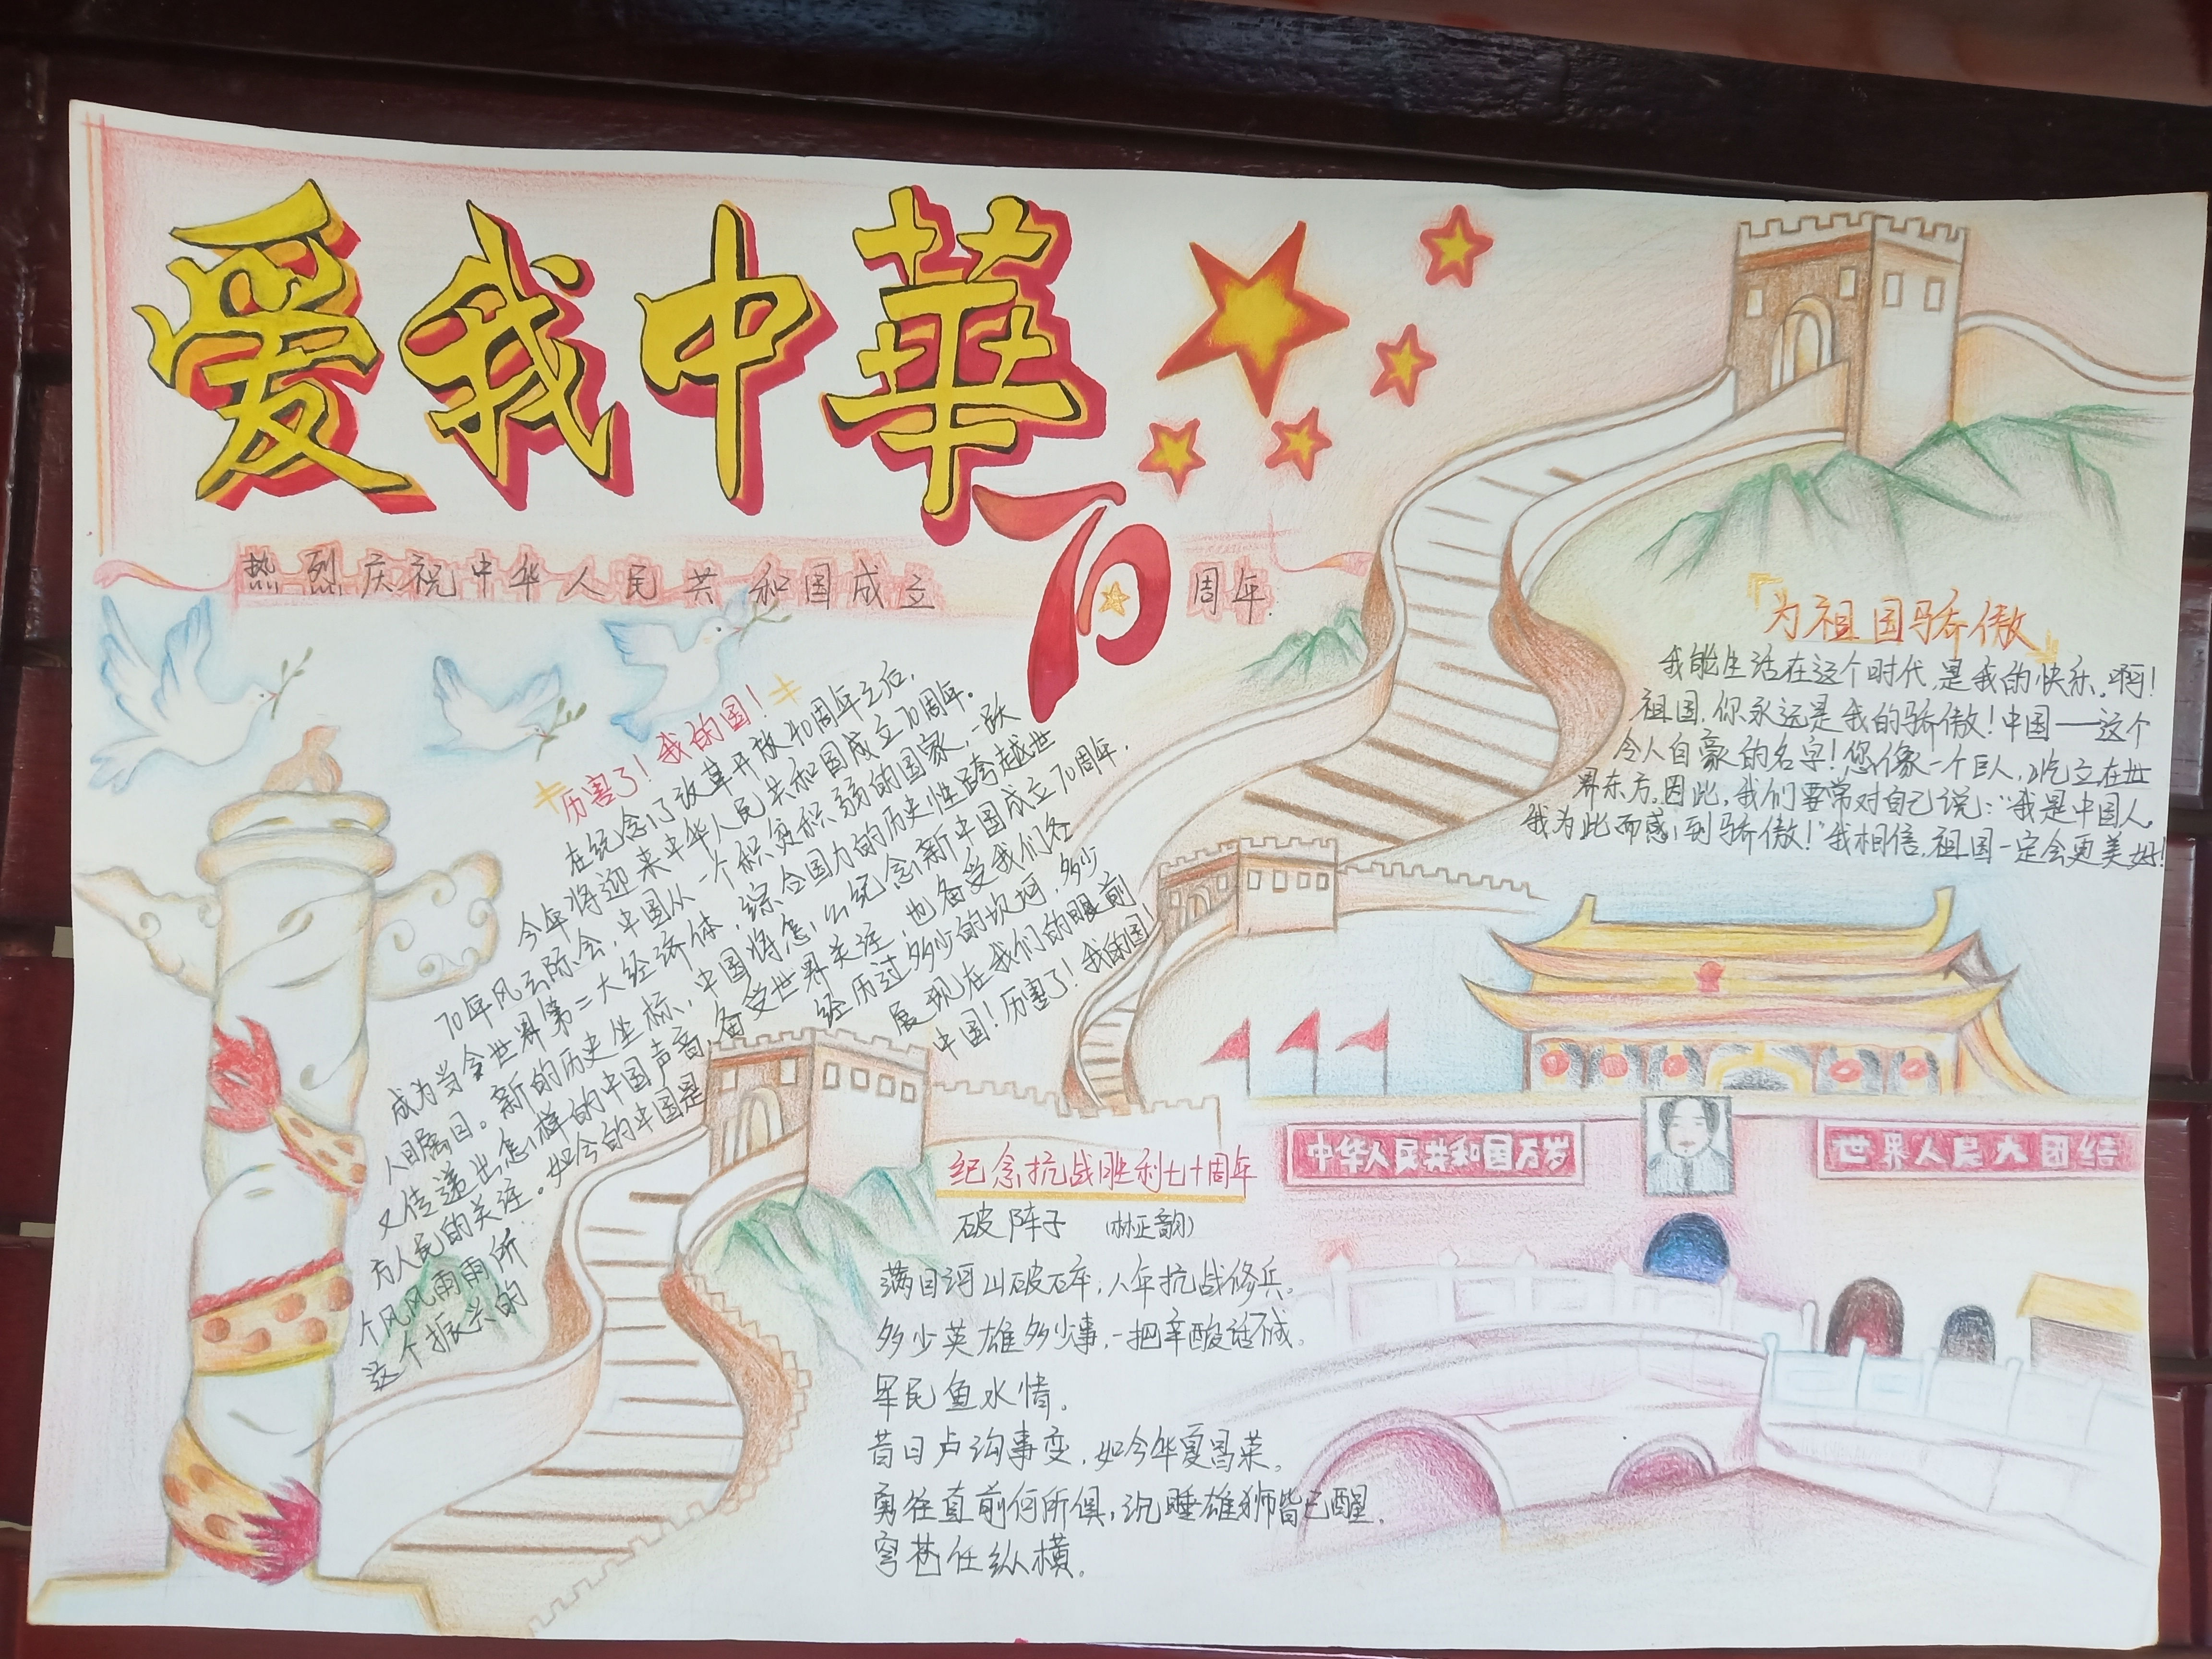 爱我中華
热烈庆祝中华人民共和国成立70周年
厉害了！我的国！
在纪念了改革开放40周年之后，
今年将迎来中华人民共和国成立70周年。
70年风云际会，中国从一个积贫积弱的国家，一跃
成为当今世界第二大经济体，综合国力的历史性跨越世
人瞩目。新的历史坐标，中国将怎么纪念新中国成立70周年，
又传递出怎样的中国声音，备受世界关注，也备受我们各
方人民的关注。如今的中国是经历过多少的坎坷，多少
个风风雨雨所展现在我们的眼前
这个振兴的中国！厉害了！我的国！
『为祖国骄傲』
我能生活在这个时代，是我的快乐。啊！
祖国，你永远是我的骄傲！中国——这个
令人自豪的名字！您像一个巨人，屹立在世
界东方。因此，我们要常对自己说：“我是中国人，
我为此而感到骄傲！”我相信，祖国一定会更美好！
中华人民共和国万岁
世界人民大团结
纪念抗战胜利七十周年
破阵子 (林正韵)
满目河山破碎，八年抗战修兵。
多少英雄多少事，一把辛酸话不成。
军民鱼水情。
昔日卢沟事变，如今华夏昌荣。
勇往直前何所惧，沉睡雄狮皆已醒，
穹苍任纵横。